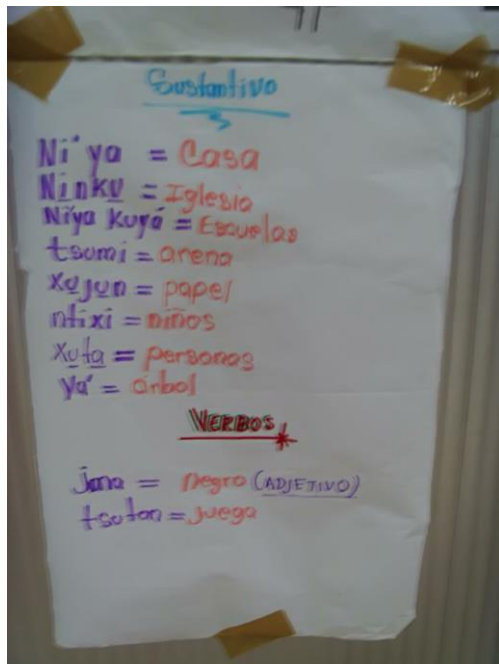 Sustantivo
Ni'ya = Casa
Ni̱nku̱ = Iglesia
Ni'ya Kuyá = Escuelas
tsomi = arena
Xu̱ju̱n = papel
ntixi = niños
Xu̱ta̱ = personas
Ya' = árbol
VERBOS
jma = negro (ADJETIVO)
tsutan = juega